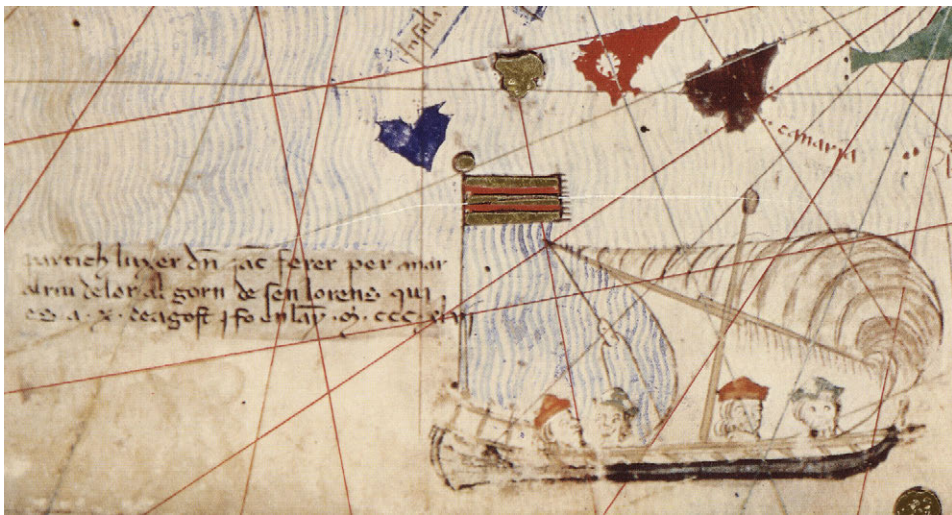 Insula
canaria
partich luxer dn jac ferer per mar
al riu de lor al gorn de sen lorens qui
es a · x · de agost i fo en lay · m · ccc · xlvi